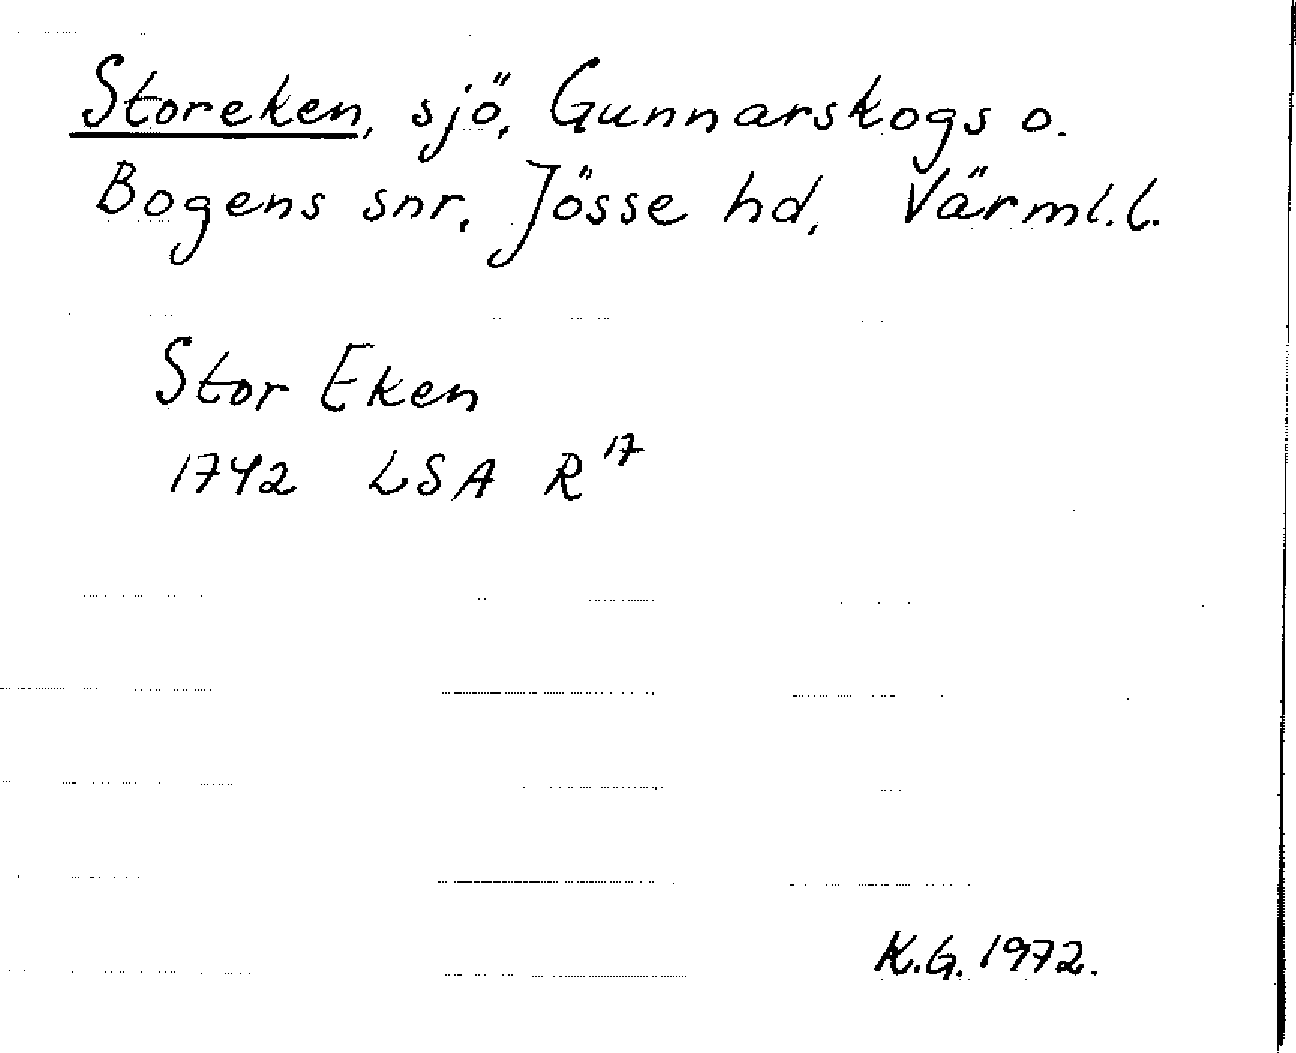 Storeken, sjö, Gunnarskogs o.
Bogens snr, Jösse hd, Värml.l.
Stor Eken
1742 LSA R17
K.G. 1972.